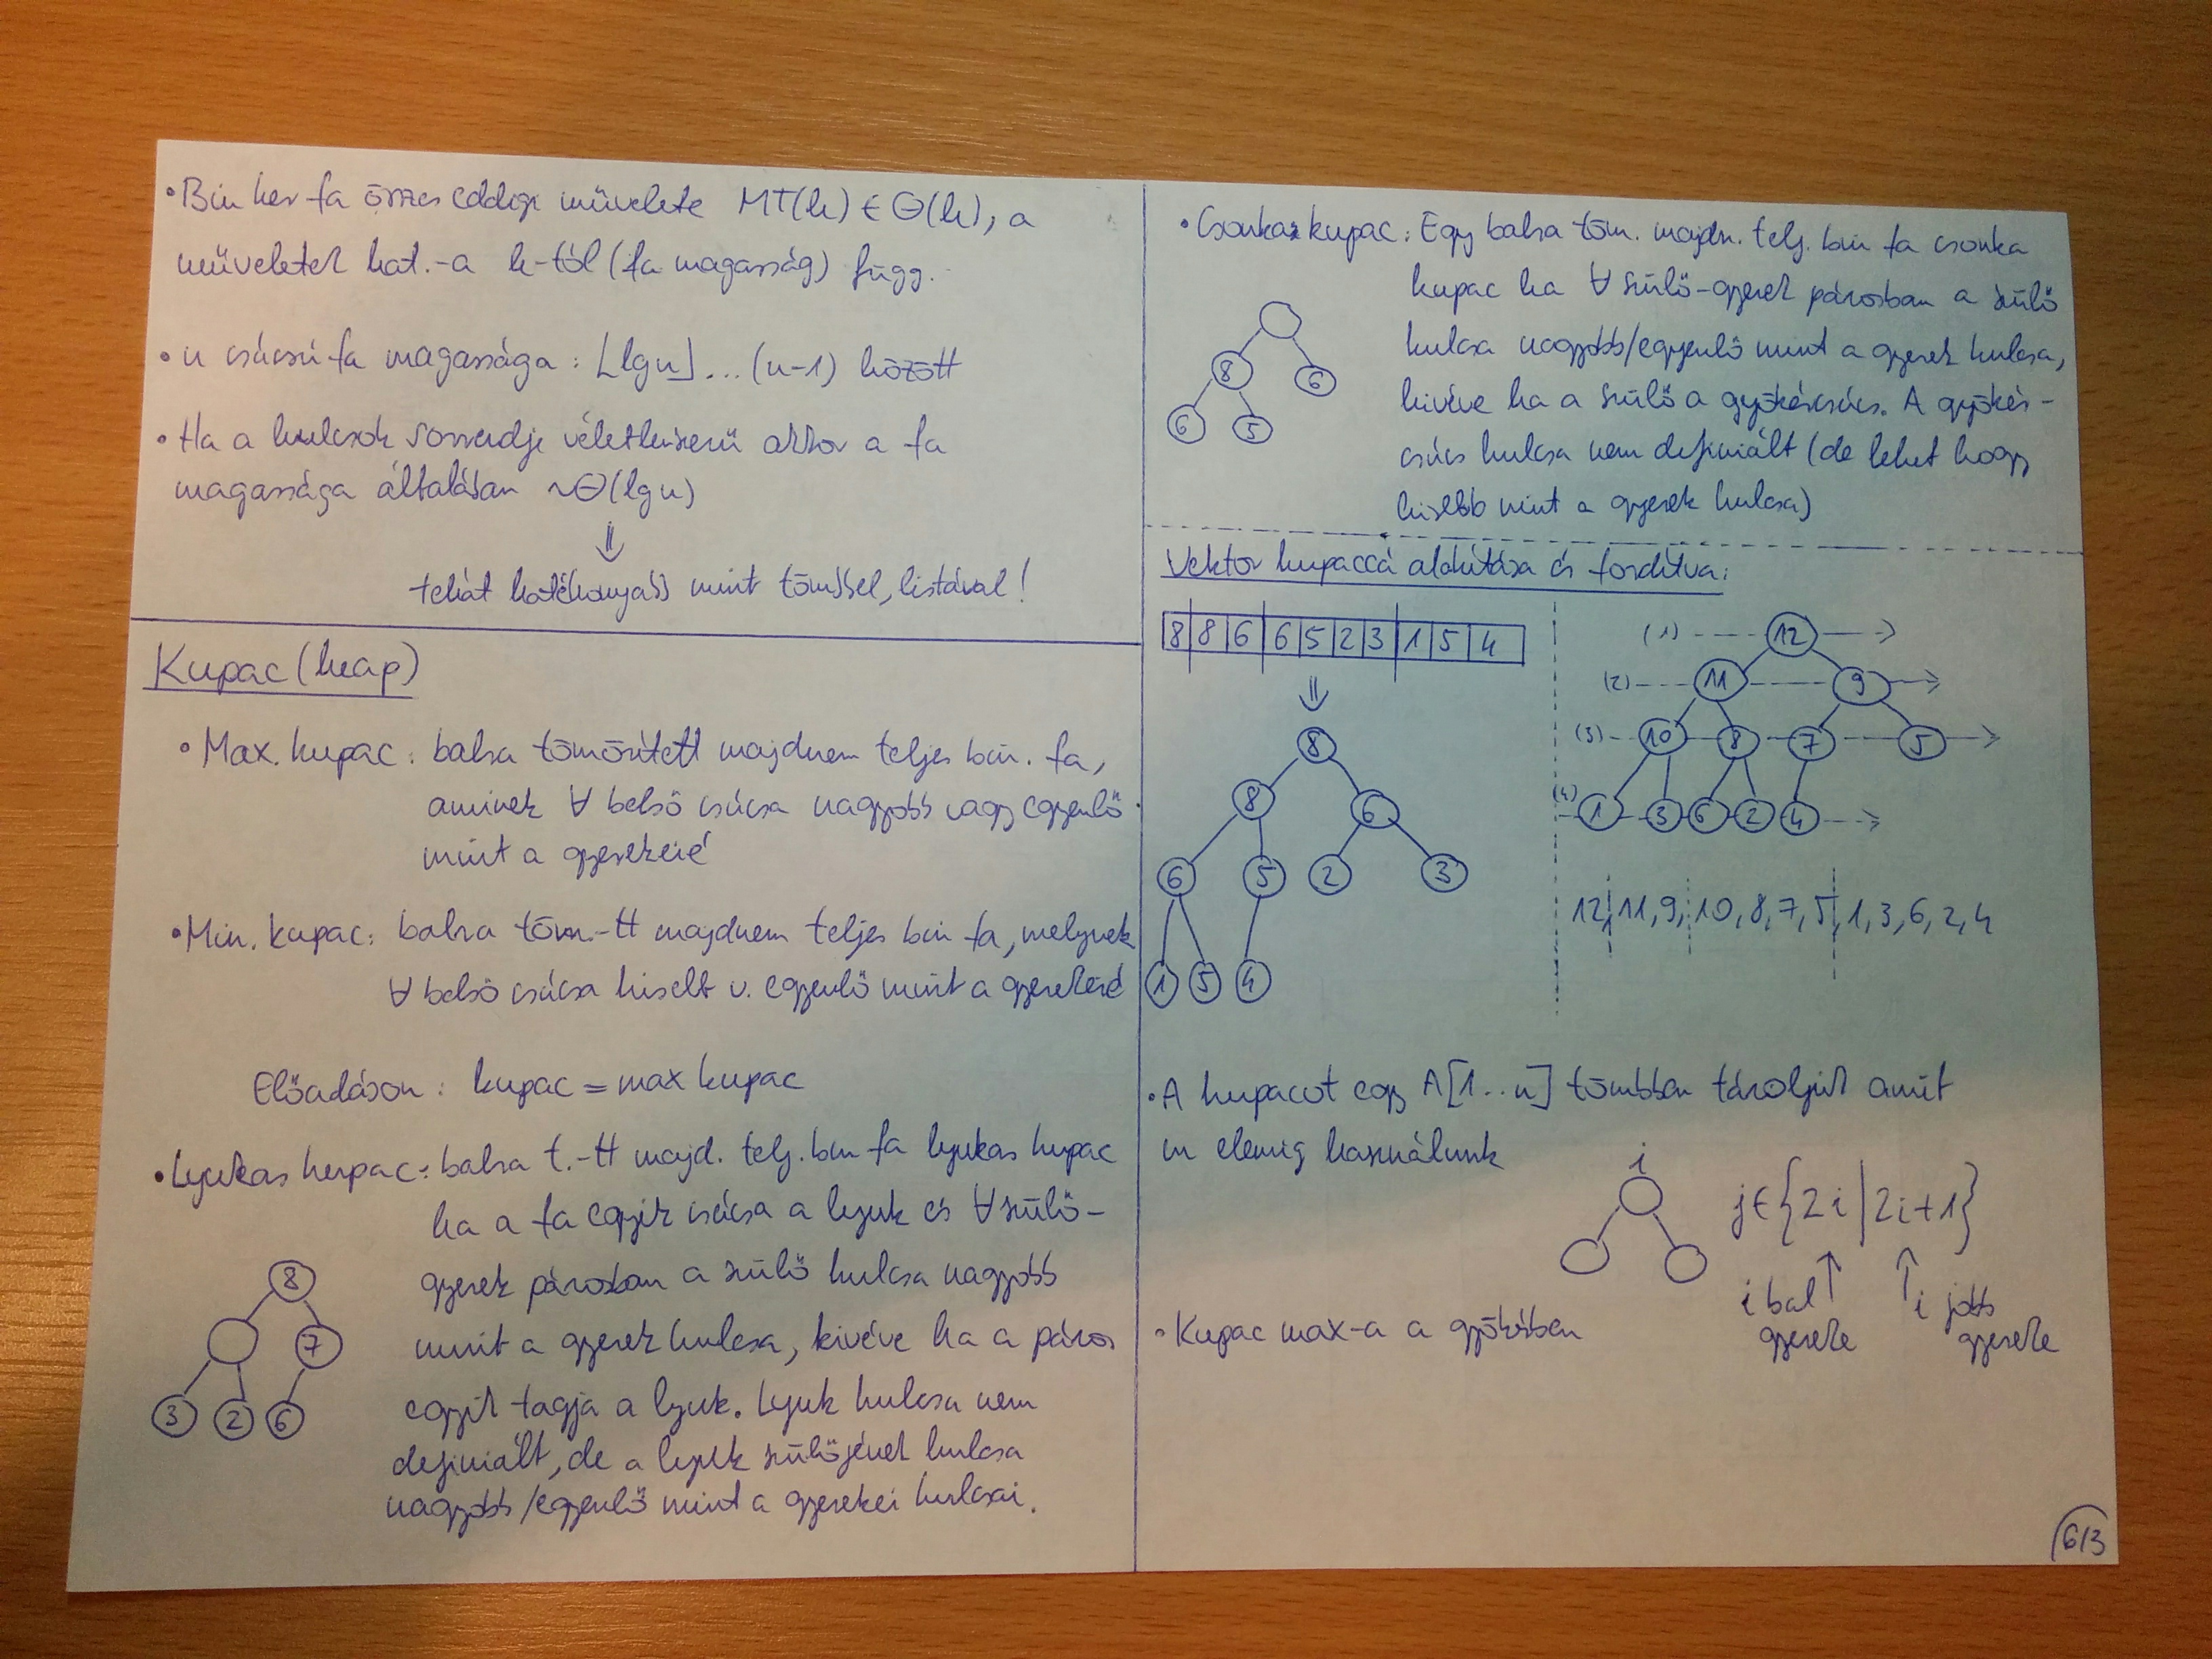 • Bin ker fa összes eddigi művelete MT(h) ∈ Θ(h), a
műveletek hat.-a h-tól (fa magasság) függ.
• n csúcsú fa magassága : ⌊lg n⌋ ... (n-1) között
• Ha a kulcsok sorrendje véletlenszerű akkor a fa
magassága általában ~Θ(lg n)
⇓
tehát hatékonyabb mint tömbbel, listával!
Kupac (heap)
• Max. kupac : balra tömörített majdnem teljes bin. fa,
aminek ∀ belső csúcsa nagyobb vagy egyenlő
mint a gyerekeié
• Min. kupac : balra töm.-tt majdnem teljes bin fa, melynek
∀ belső csúcsa kisebb v. egyenlő mint a gyerekeié
Előadáson : kupac = max kupac
• Lyukas kupac : balra t.-tt majd. telj. bin fa lyukas kupac
ha a fa egyik csúcsa a lyuk és ∀ szülő-
gyerek párosban a szülő kulcsa nagyobb
mint a gyerek kulcsa, kivéve ha a páros
egyik tagja a lyuk. Lyuk kulcsa nem
definiált, de a lyuk szülőjének kulcsa
nagyobb/egyenlő mint a gyerekei kulcsai.
8
7
3 2 6
• Csonka kupac : Egy balra töm. majdn. telj. bin fa csonka
kupac ha ∀ szülő-gyerek párosban a szülő
kulcsa nagyobb/egyenlő mint a gyerek kulcsa,
kivéve ha a szülő a gyökércsúcs. A gyökér-
csúcs kulcsa nem definiált (de lehet hogy
kisebb mint a gyerek kulcsa)
8 6
6 5
Vektor kupaccá alakítása és fordítva:
8 8 6 6 5 2 3 1 5 4
⇓
8
8 6
6 5 2 3
1 5 4
(1) 12
(2) 11 9
(3) 10 8 7 5
(4) 1 3 6 2 4
12, 11, 9, 10, 8, 7, 5, 1, 3, 6, 2, 4
• A kupacot egy A[1..n] tömbben tároljuk amit
m elemig használunk
i
j ∈ {2i | 2i+1}
i bal ↑
gyereke
↑ i jobb
gyereke
• Kupac max-a a gyökérben
6/3